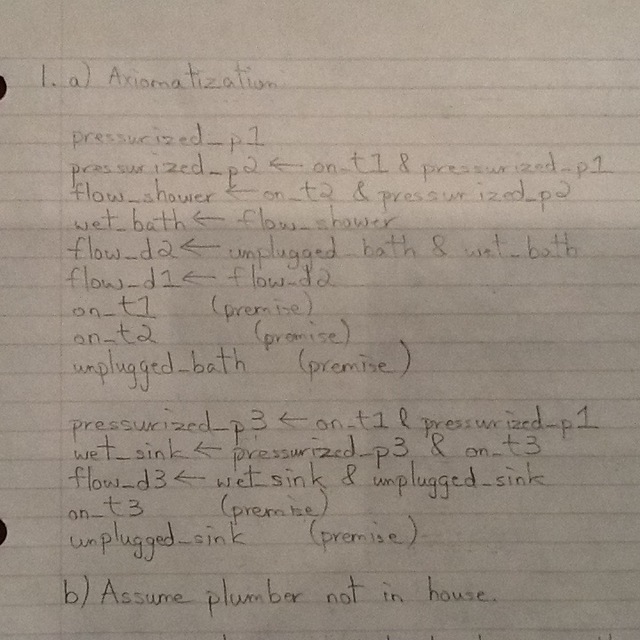 1. a) Axiomatization
pressurized_p1
pressurized_p2 ← on_t1 & pressurized_p1
flow_shower ← on_t2 & pressurized_p2
wet_bath ← flow_shower
flow_d2 ← unplugged_bath & wet_bath
flow_d1 ← flow_d2
on_t1 (premise)
on_t2 (premise)
unplugged_bath (premise)
pressurized_p3 ← on_t1 & pressurized_p1
wet_sink ← pressurized_p3 & on_t3
flow_d3 ← wet_sink & unplugged_sink
on_t3 (premise)
unplugged_sink (premise)
b) Assume plumber not in house.